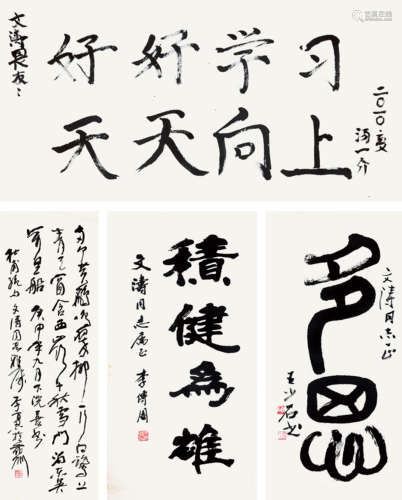 文涛畏友:
好好学习
天天向上
二〇一〇夏
汤一介
两个黄鹂鸣翠柳一行白鹭上
青天窗含西岭千秋雪门泊东吴
万里船 庚申年九月下浣
文涛同志雅属
積健為雄
文涛同志属正
李传周
文涛同志正
王少石书